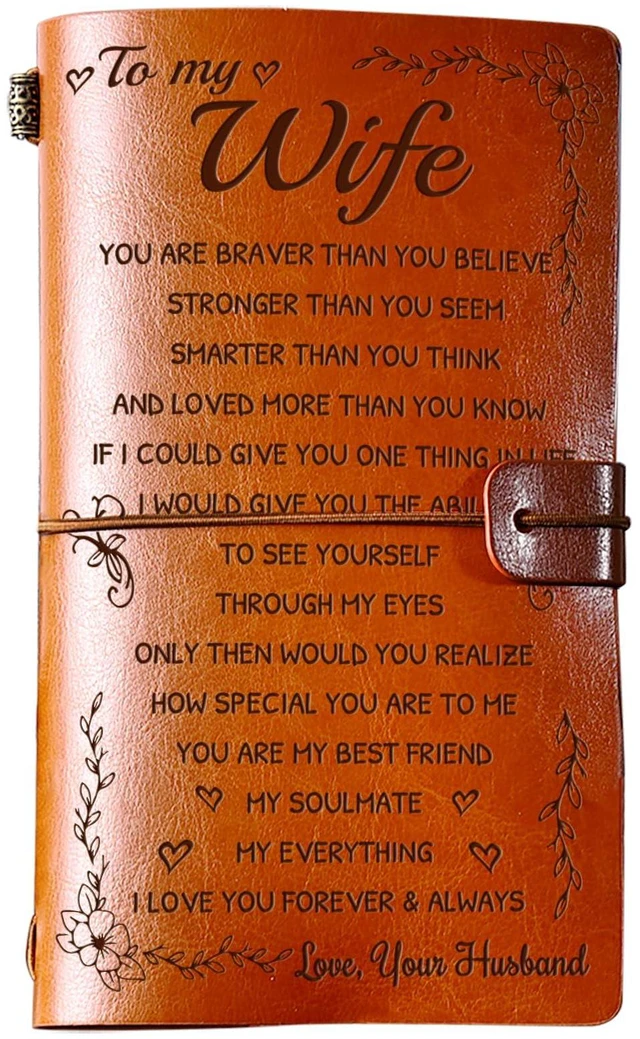 To my
Wife
YOU ARE BRAVER THAN YOU BELIEVE
STRONGER THAN YOU SEEM
SMARTER THAN YOU THINK
AND LOVED MORE THAN YOU KNOW
IF I COULD GIVE YOU ONE THING IN LIFE
I WOULD GIVE YOU THE
TO SEE YOURSELF
THROUGH MY EYES
ONLY THEN WOULD YOU REALIZE
HOW SPECIAL YOU ARE TO ME
YOU ARE MY BEST FRIEND
MY SOULMATE
MY EVERYTHING
I LOVE YOU FOREVER & ALWAYS
Love, Your Husband